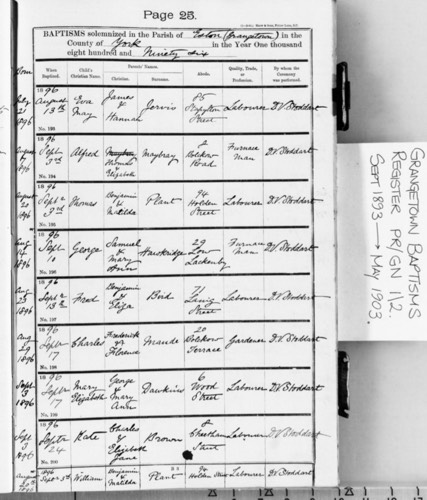 Page 25.
BAPTISMS solemnized in the Parish of Eston (Grangetown) in the
County of York in the Year One thousand
eight hundred and Ninety six
Born
When Baptized. Child's Christian Name. Parents' Names. Christian. Surname. Abode. Quality, Trade, or Profession. By whom the Ceremony was performed.
July 21 1896
1896 August 13th Eva May James & Hannah Jervis 85 Street Labourer D.V. Stoddart
No. 193
August 1896
1896 Sept 3rd Alfred Thomas & Elizabeth Maybray 2 Bolckow Road Furnace Man D.V. Stoddart
No. 194
August 20 1896
1896 Sept 3rd Thomas Benjamin & Matilda Plant 94 Holden Street Labourer D.V. Stoddart
No. 195
Aug 14 1896
1896 Sept 10 George Samuel & Mary Ann 29 Low Lackenby Furnace Man D.V. Stoddart
No. 196
Aug 23 1896
1896 Sept Fred Benjamin & Eliza Bird Laing Street Labourer D.V. Stoddart
No. 197
Aug 29 1896
1896 Sept 17 Charles Frederick & Florence Maude 20 Bolckow Terrace Gardener D.V. Stoddart
No. 198
Sept 3 1896
1896 Sept 17 Mary Elizabeth George & Mary Ann Dawkins 6 Wood Street Labourer D.V. Stoddart
No. 199
Sept 1896
1896 Sept 24 Kate Charles & Elizabeth Jane Brown 8 Cheetham Street Labourer D.V. Stoddart
No. 200
August 1896
1896 Sept 3rd William Benjamin & Matilda Plant 94 Holden Street Labourer D.V. Stoddart
GRANGETOWN BAPTISMS
REGISTER PR/GN 1/2.
SEPT 1893 → MAY 1903.